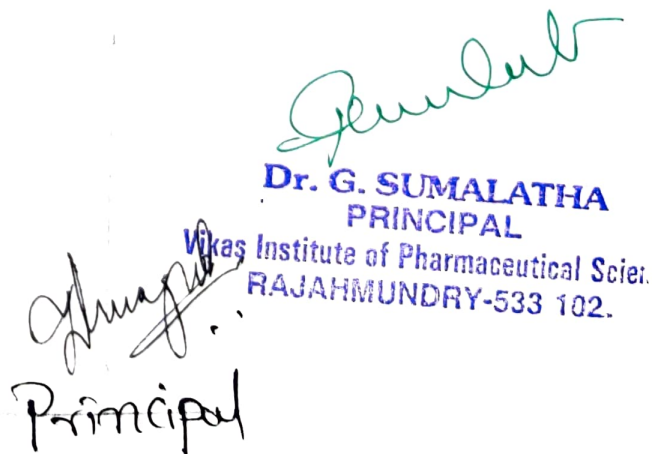 Dr. G. SUMALATHA
PRINCIPAL
Vikas Institute of Pharmaceutical Scien.
RAJAHMUNDRY-533 102.
Principal